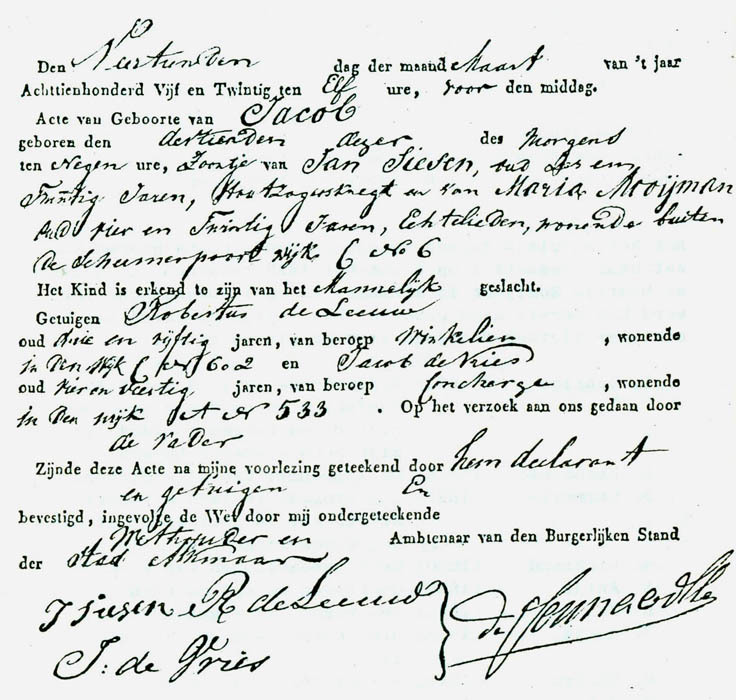 Den Veertienden dag der maand Maart van 't jaar
Achttienhonderd Vijf en Twintig ten Elf ure, voor den middag.
Acte van Geboorte van Jacob
geboren den dertienden dezer des Morgens
ten Negen ure, Zoontje van Jan Siesen, oud Zes en
Twintig Jaren, Houtzagersknegt en van Maria Mooijman
oud vier en Twintig Jaren, Echtelieden, wonende buiten
de Schermerpoort wijk C No 6
Het Kind is erkend te zijn van het Mannelijk geslacht.
Getuigen Robertus de Leeuw
oud drie en vijftig jaren, van beroep Winkelier , wonende
in den wijk C No 602 en Jacob de Vries
oud vier en veertig jaren, van beroep Concherge , wonende
in den wijk A No 533 . Op het verzoek aan ons gedaan door
de vader
Zijnde deze Acte na mijne voorlezing geteekend door hem declarant
en getuigen En
bevestigd, ingevolge de Wet door mij ondergeteekende
Wethouder en Ambtenaar van den Burgerlijken Stand
der Stad Alkmaar
J Siesen R de Leeuw
J: de Vries